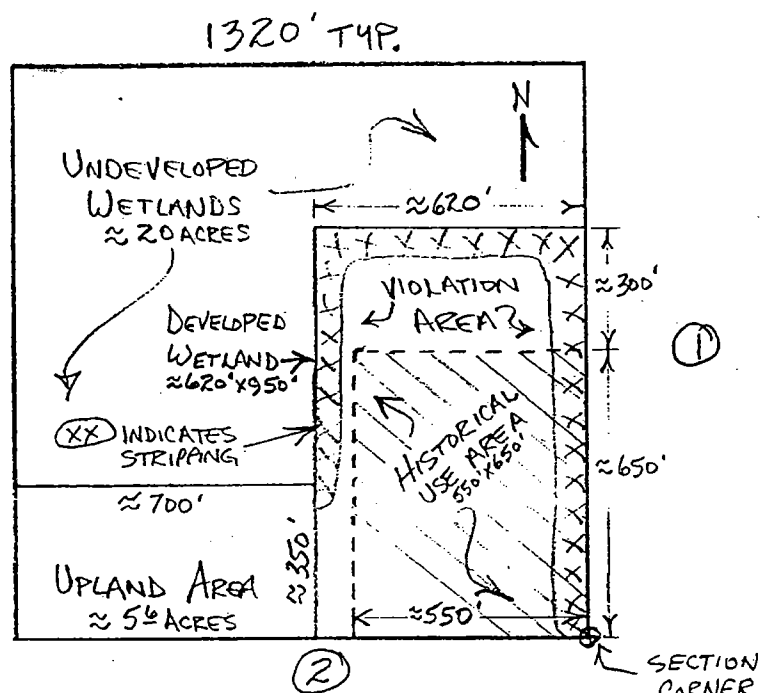 1320' TYP.
N
UNDEVELOPED
WETLANDS
≈ 20 ACRES
≈620'
≈300'
VIOLATION
AREA?
DEVELOPED
WETLAND
≈620'X950'
1
XX INDICATES
STRIPPING
HISTORICAL
USE AREA
550'X650'
≈650'
≈700'
≈350'
UPLAND AREA
≈ 5.6 ACRES
≈550'
2
SECTION
CORNER